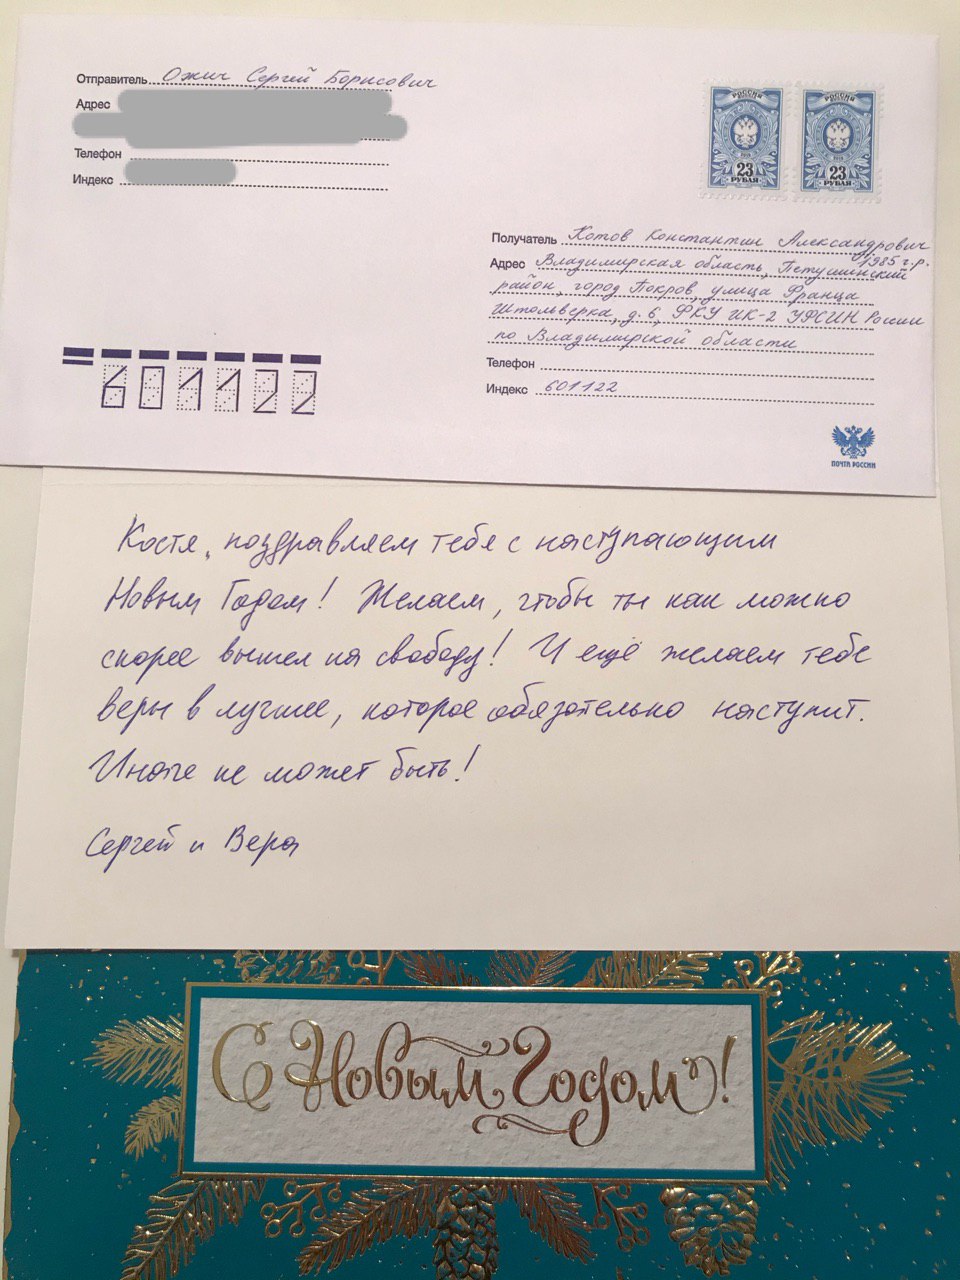 Отправитель Ожич Сергей Борисович
Адрес
Телефон
Индекс
РОССИЯ
2019
23
РУБЛЯ
РОССИЯ
2019
23
РУБЛЯ
Получатель Котов Константин Александрович
1985 г.р.
Адрес Владимирская область, Петушинский
район, город Покров, улица Франца
Штольверка, д. 6, ФКУ ИК-2 УФСИН России
по Владимирской области
Телефон
Индекс 601122
601122
ПОЧТА РОССИИ
Костя, поздравляем тебя с наступающим
Новым Годом! Желаем, чтобы ты как можно
скорее вышел на свободу! И ещё желаем тебе
веры в лучшее, которое обязательно наступит.
Иначе не может быть!
Сергей и Вера
С Новым Годом!